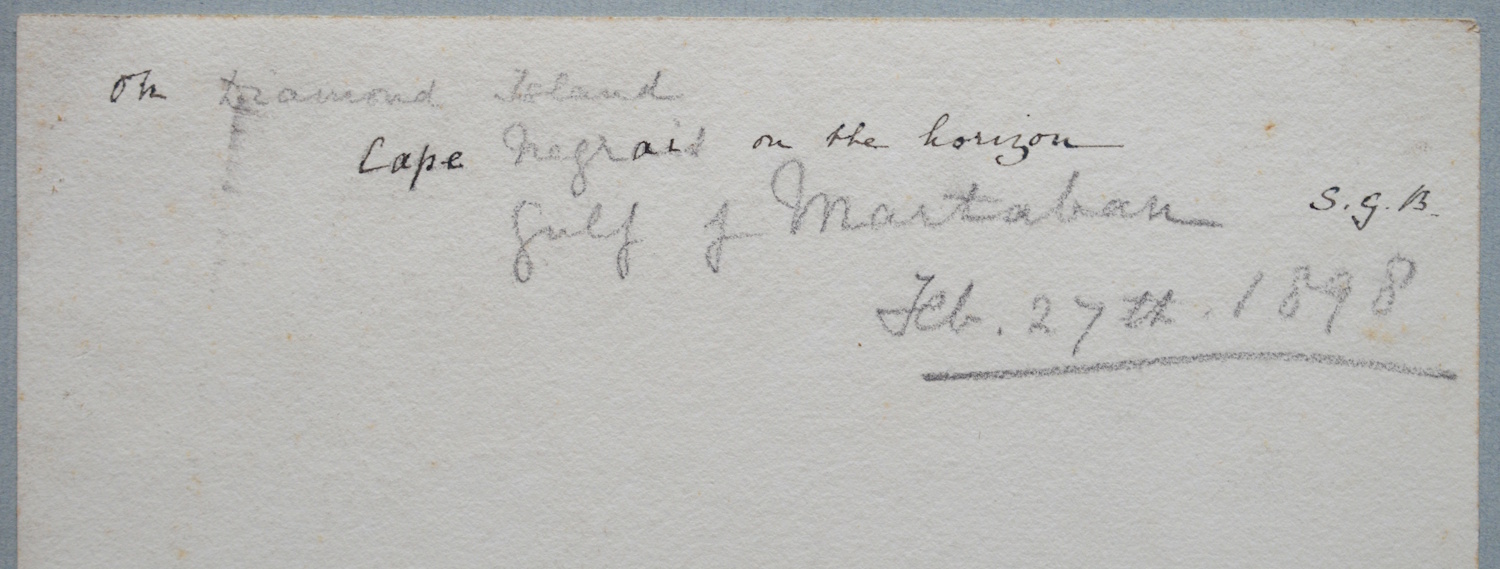 On Diamond Island
Cape Negrais on the horizon
Gulf of Martaban
S.G.B.
Feb. 27th. 1898